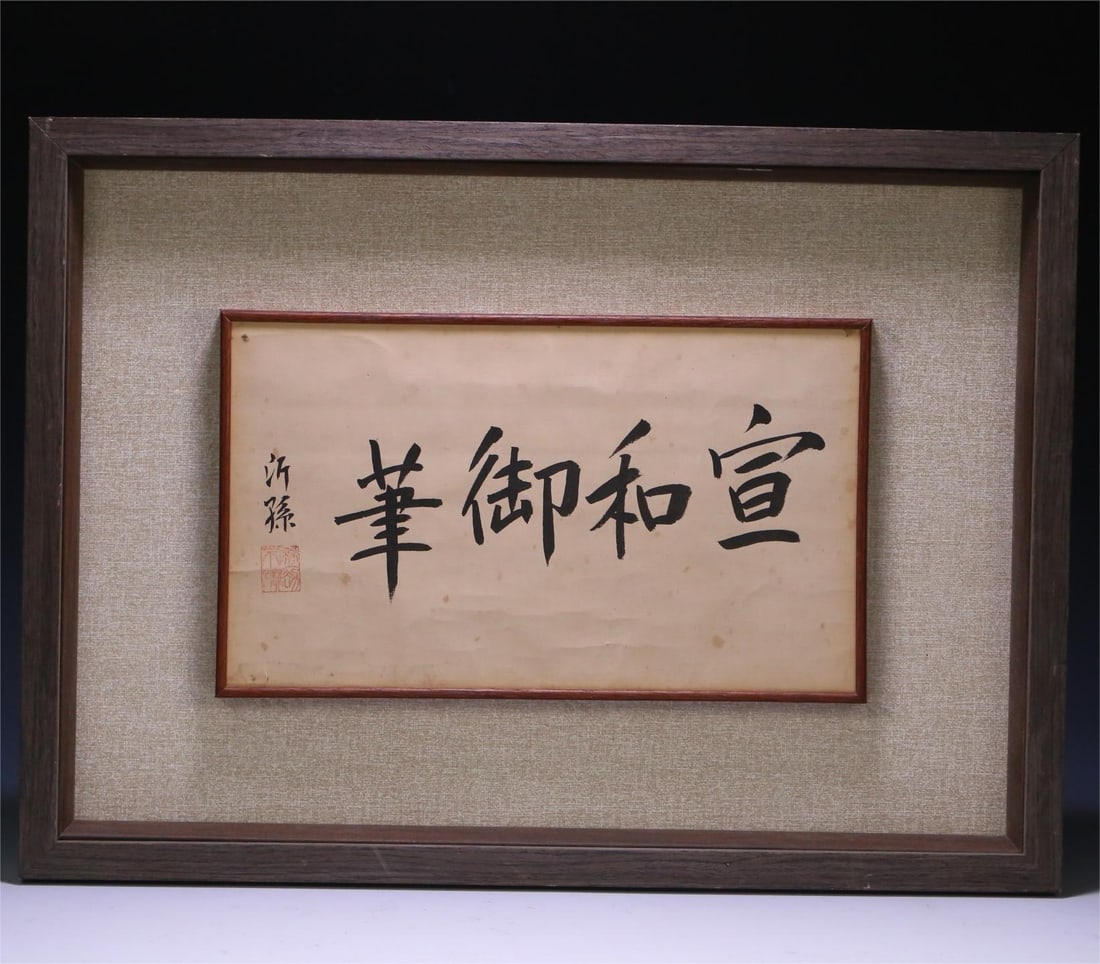 宣和御筆
沂孫